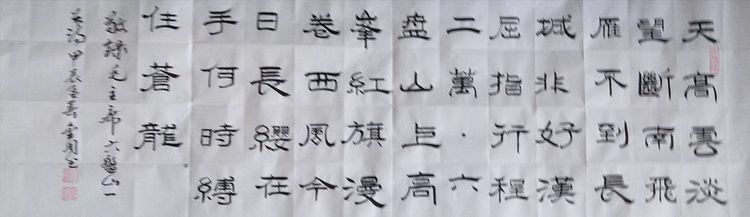 天高雲淡
望斷南飛
雁不到長
城非好漢
屈指行程
二萬·六
盘山上高
峯紅旗漫
卷西風今
日長纓在
手何時縛
住蒼龍。
敬録毛主席六盤山一
甲辰